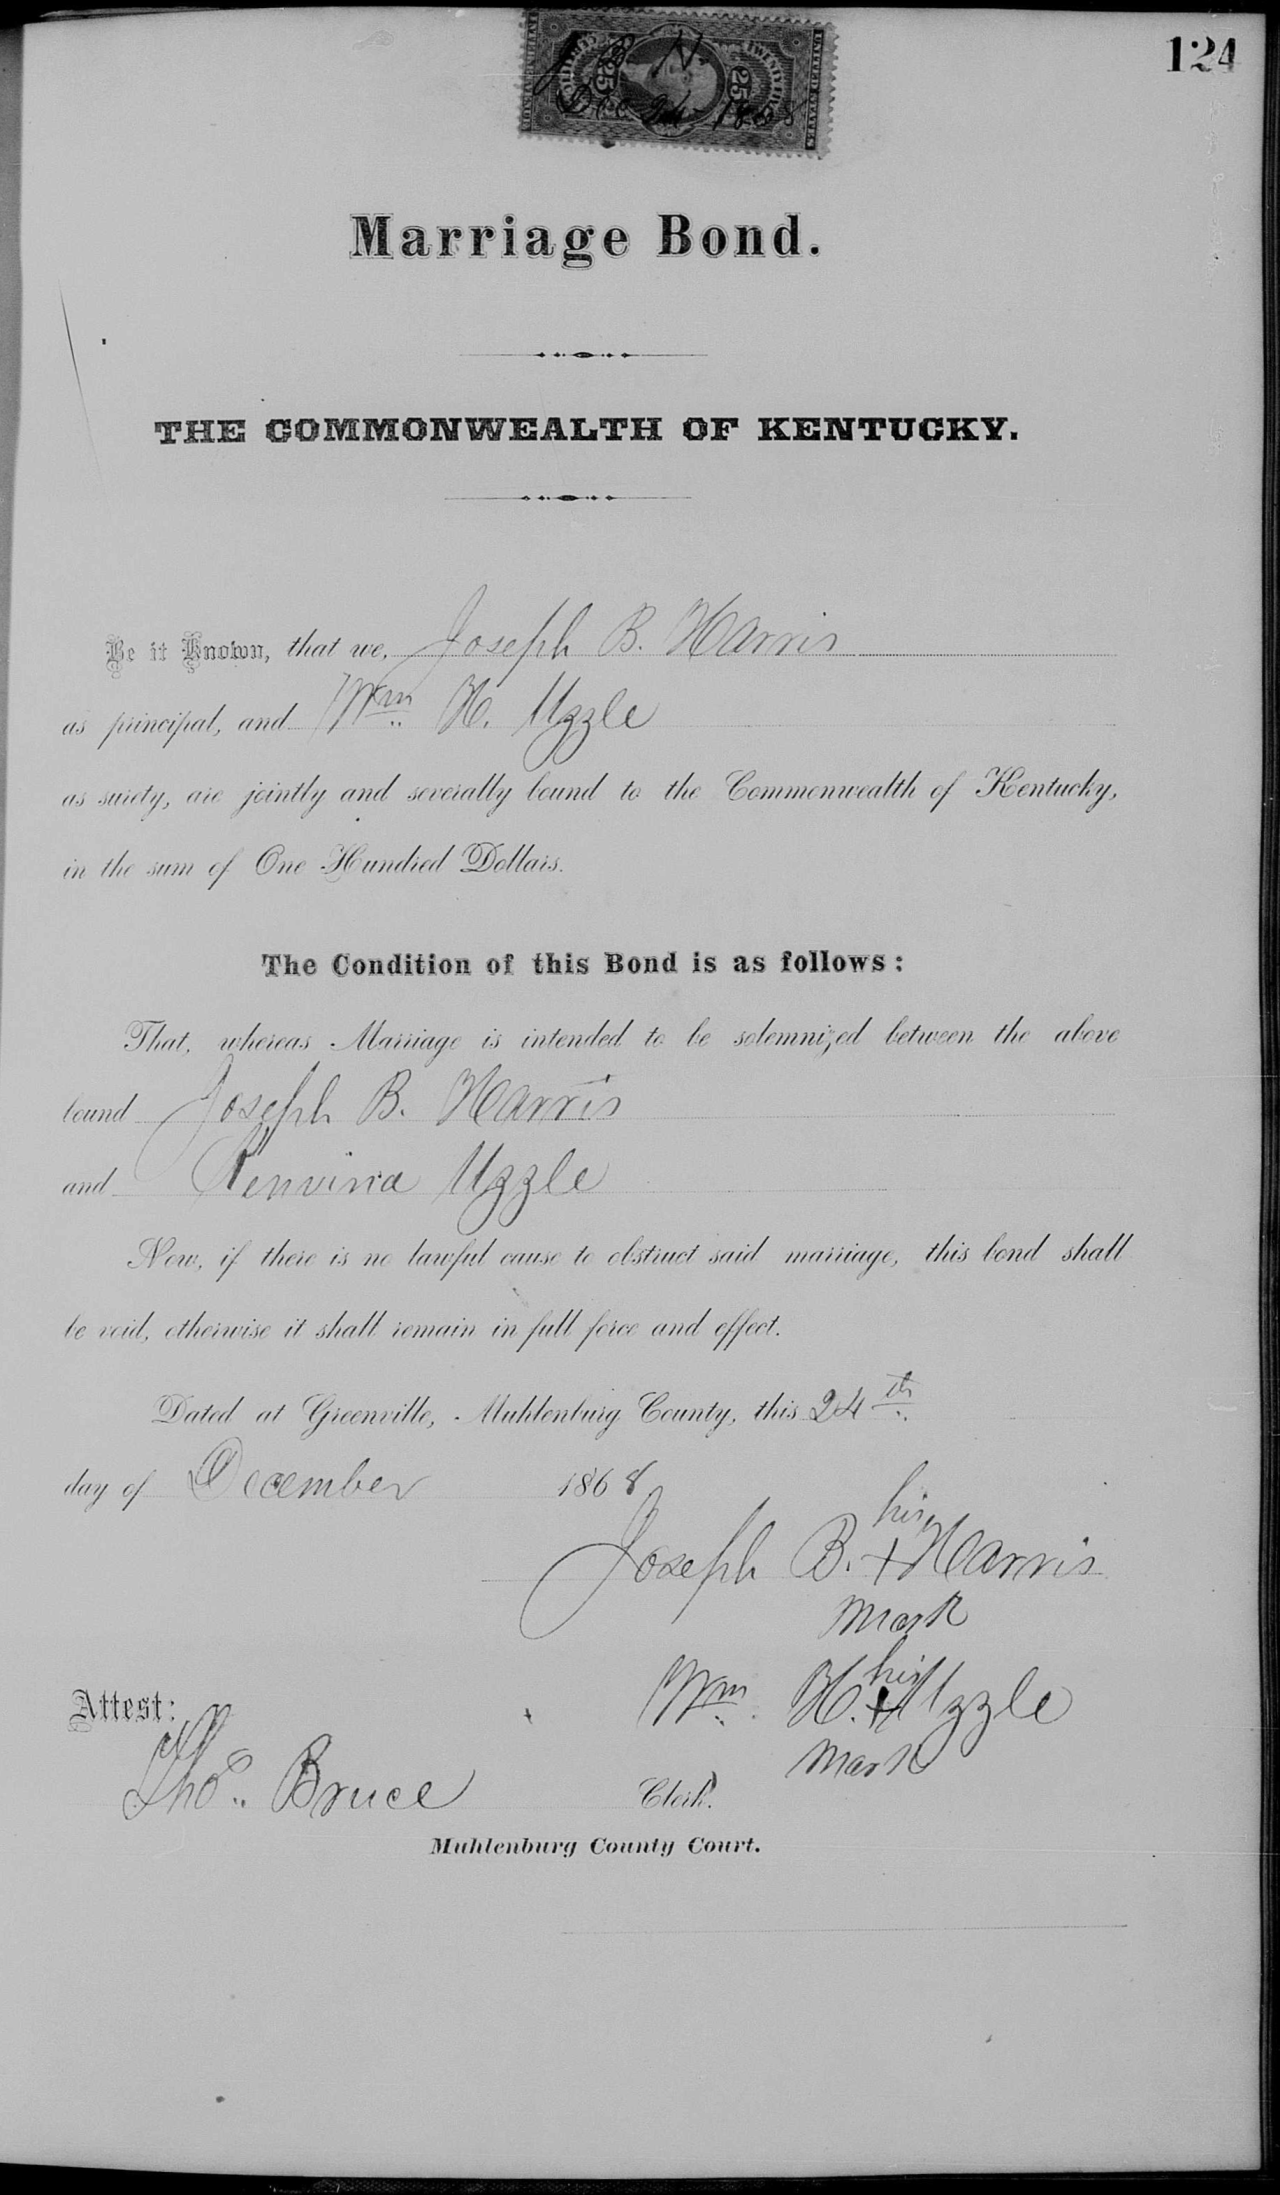 124
J B H
Dec 24 1868
25 25
UNITED STATES
Marriage Bond.
THE COMMONWEALTH OF KENTUCKY.
Be it Known, that we, Joseph B. Harris
as principal, and Wm H. Uzzle
as surety, are jointly and severally bound to the Commonwealth of Kentucky,
in the sum of One Hundred Dollars.
The Condition of this Bond is as follows:
That, whereas Marriage is intended to be solemnized between the above
bound Joseph B. Harris
and Renvina Uzzle
Now, if there is no lawful cause to obstruct said marriage, this bond shall
be void, otherwise it shall remain in full force and effect.
Dated at Greenville, Muhlenburg County, this 24th
day of December 1868
his
Joseph B. + Harris
mark
his
Wm H. + Uzzle
mark
Attest:
Thos. Bruce Clerk.
Muhlenburg County Court.